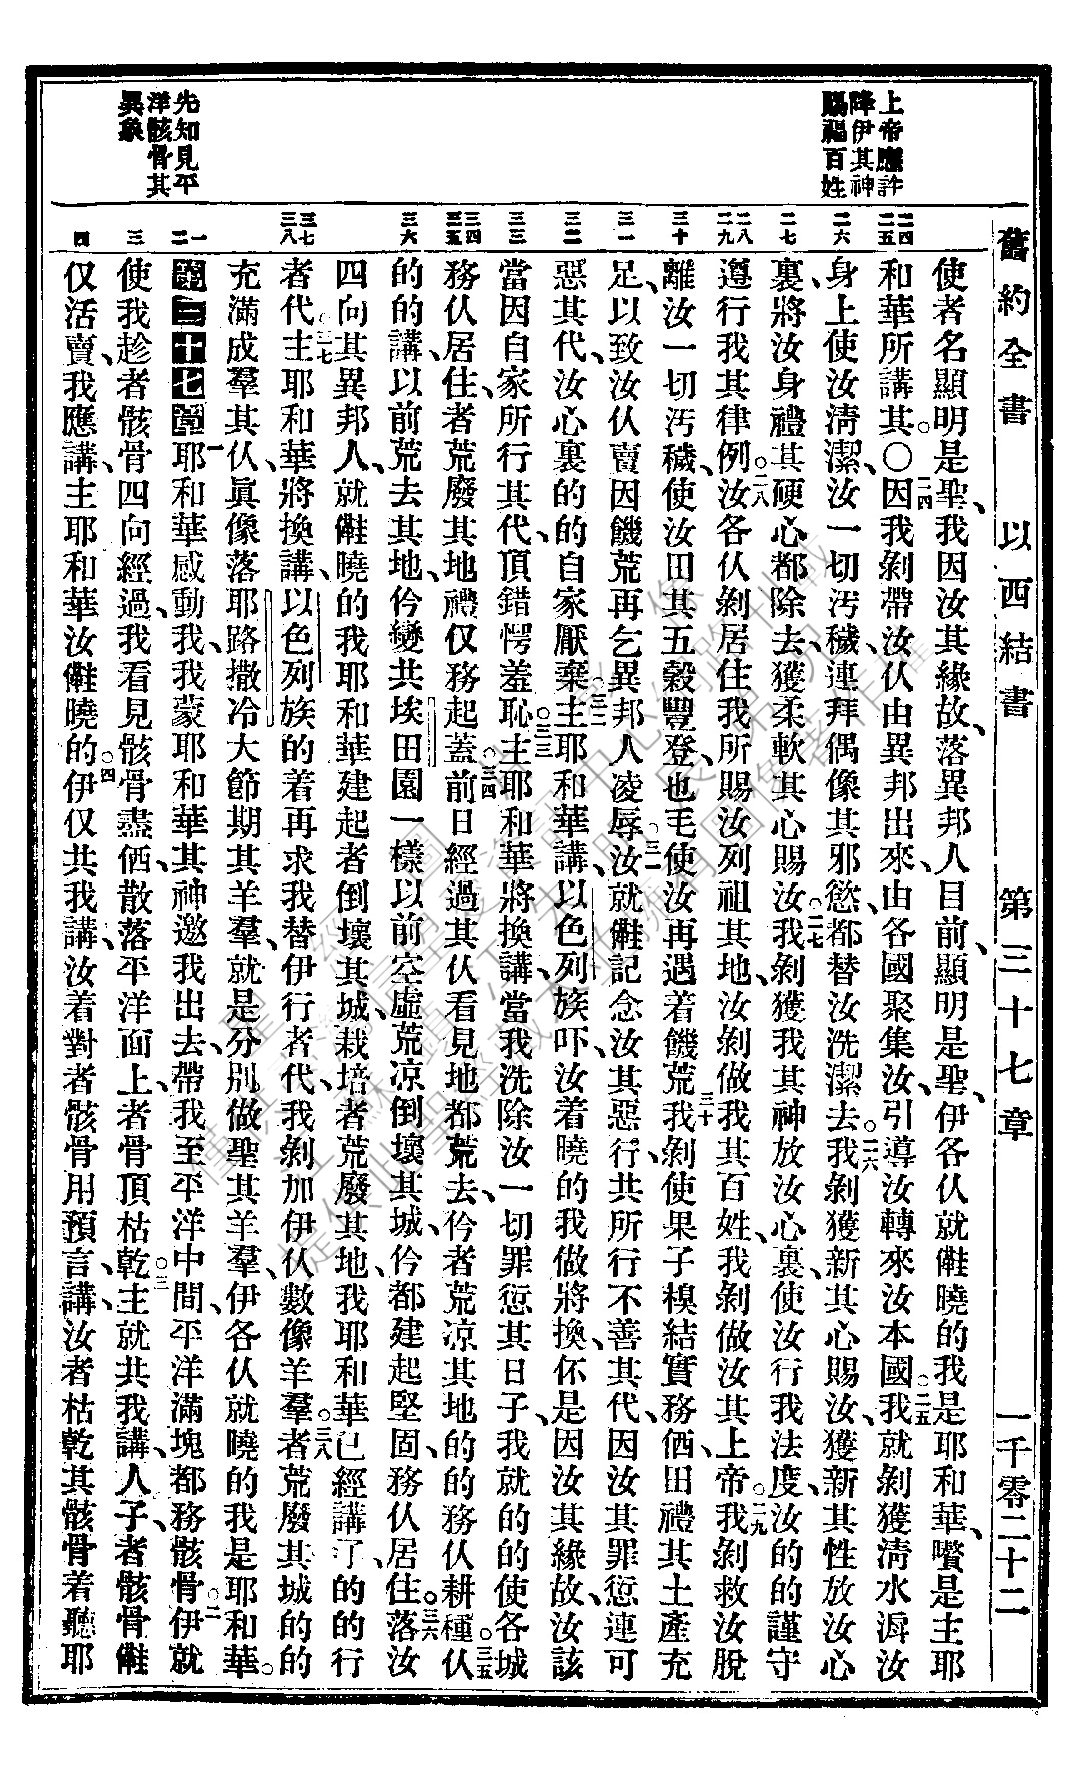 舊約全書 以西結書 第三十七章 一千零二十二
上帝應許
降伊其神
賜福百姓
先知見平
洋骸骨其
異象
二四
二五
二六
二七
二八
二九
三十
三一
三二
三三
三四
三五
三六
三七
三八
一
二
三
四
使者名顯明是聖、我因汝其緣故、落異邦人目前、顯明是聖、伊各仈就僆曉的我是耶和華、囋是主耶
和華所講其。〇二四因我剝帶汝仈由異邦出來、由各國聚集汝、引導汝轉來汝本國。二五我就剝獲淸水㵒汝
身上使汝淸潔、汝一切汚穢、連拜偶像其邪慾都替汝洗潔去。二六我剝獲新其心賜汝、獲新其性放汝心
裏、將汝身禮其硬心都除去、獲柔軟其心賜汝。二七我剝獲我其神放汝心裏、使汝行我法度、汝的的謹守
遵行我其律例。二八汝各仈剝居住我所賜汝列祖其地、汝剝做我其百姓、我剝做汝其上帝。二九我剝救汝脫
離汝一切汚穢、使汝田其五穀豐登、也毛使汝再遇着饑荒。三十我剝使果子樕結實務価、田禮其土產充
足、以致汝仈賣因饑荒再乞異邦人凌辱。三一汝就僆記念汝其惡行、共所行不善其代、因汝其罪愆連可
惡其代、汝心裏的的自家厭棄。三二主耶和華講、以色列族吓、汝着曉的我做將換、伓是因汝其緣故、汝該
當因自家所行其代、頂錯愕羞恥。三三主耶和華將換講、當我洗除汝一切罪愆其日子、我就的的使各城
務仈居住、者荒廢其地禮仅務起蓋。三四前日經過其仈看見地都荒去、仱者荒凉其地的的務仈耕種。三五仈
的的講、以前荒去其地、仱變共埃田園一樣、以前空虛荒凉倒壞其城、仱都建起堅固、務仈居住。三六落汝
四向其異邦人、就僆曉的我耶和華建起者倒壞其城、栽培者荒廢其地、我耶和華已經講了、的的行
者代。三七主耶和華將換講、以色列族的着再求我替伊行者代、我剝加伊仈數像羊羣。三八者荒廢其城的的
充滿成羣其仈、眞像落耶路撒冷大節期其羊羣、就是分別做聖其羊羣、伊各仈就曉的我是耶和華。
第三十七章 一耶和華感動我、我蒙耶和華其神邀我出去、帶我至平洋中間、平洋滿塊都務骸骨。二伊就
使我趁者骸骨四向經過、我看見骸骨盡価、散落平洋面上、者骨頂枯乾。三主就共我講、人子、者骸骨僆
仅活賣、我應講、主耶和華汝僆曉的。四伊仅共我講、汝着對者骸骨用預言、講、汝者枯乾其骸骨着聽耶